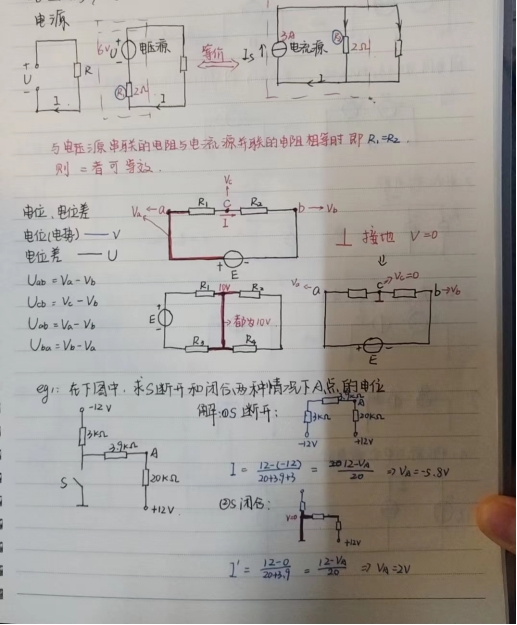 电源
+
U
-
R
I
6V
+
U
-
电压源
R₁
2Ω
I
等价
Is
3A
电流源
R₂
2Ω
I
与电压源串联的电阻与电流源并联的电阻相等时即 R₁=R₂.
则 二者可等效.
电位、电位差
电位(电势) —— V
电位差 —— U
Uab = Va - Vb
Ucb = Vc - Vb
Uab = Va - Vb
Uba = Vb - Va
Vc
Va ← a
R₁
C
R₂
b → Vb
I
+ E -
⊥ 接地 V=0
⇓
E
R₁
10V
R₂
→ 都为10V
R₃
R₄
Va ← a
C
Vc=0
b → Vb
+ E -
eg1: 在下图中，求S断开和闭合两种情况下A点的电位
-12V
3kΩ
3.9kΩ
A
S
20kΩ
+12V
解: ①S断开:
3.9kΩ
A
3kΩ
20kΩ
-12V
+12V
I = 12-(-12)/20+3.9+3 = 12-VA/20 ⇒ VA = -5.8V
②S闭合:
V=0
+12V
I' = 12-0/20+3.9 = 12-VA/20 ⇒ VA = 2V